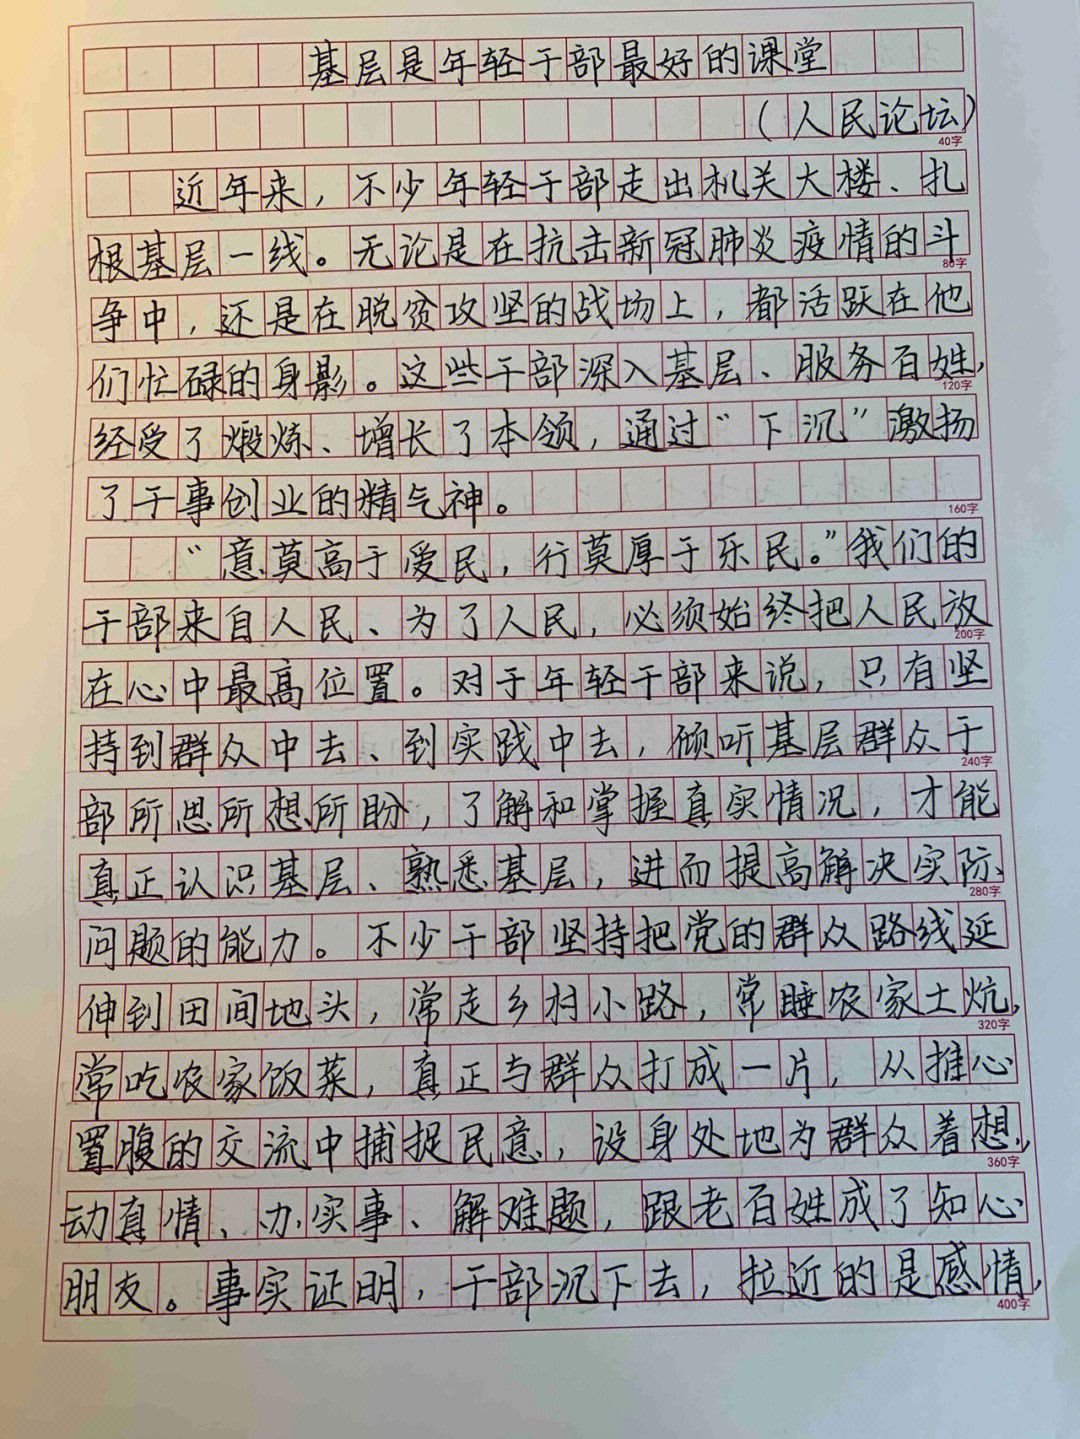 基层是年轻干部最好的课堂
（人民论坛）
40字
近年来，不少年轻干部走出机关大楼、扎
根基层一线。无论是在抗击新冠肺炎疫情的斗
80字
争中，还是在脱贫攻坚的战场上，都活跃在他
们忙碌的身影。这些干部深入基层、服务百姓，
120字
经受了煅炼、增长了本领，通过“下沉”激扬
了干事创业的精气神。
160字
“意莫高于爱民，行莫厚于乐民。”我们的
干部来自人民、为了人民，必须始终把人民放
200字
在心中最高位置。对于年轻干部来说，只有坚
持到群众中去、到实践中去，倾听基层群众干
240字
部所思所想所盼，了解和掌握真实情况，才能
真正认识基层、熟悉基层，进而提高解决实际
280字
问题的能力。不少干部坚持把党的群众路线延
伸到田间地头，常走乡村小路，常睡农家土炕，
320字
常吃农家饭菜，真正与群众打成一片，从推心
置腹的交流中捕捉民意，设身处地为群众着想，
360字
动真情、办实事、解难题，跟老百姓成了知心
朋友。事实证明，干部沉下去，拉近的是感情，
400字